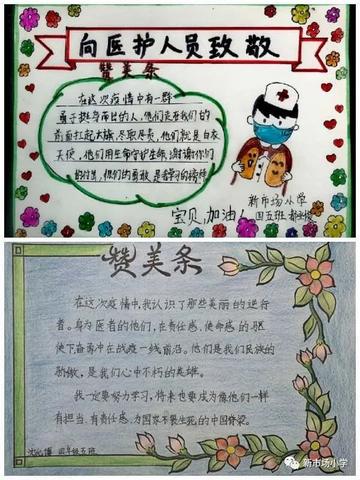 向医护人员致敬
赞美条
在这次疫情中有一群
勇于挺身而出的人,他们走在我们的
前面扛起大旗,尽职尽责,他们就是白衣
天使,他们用生命守护生命,谢谢你们
的付出,你们的勇敢,是我学习的榜样
宝贝,加油!
新市场小学
赞美条
在这次疫情中,我认识了那些美丽的逆行
者。身为医者的他们,在责任感、使命感的驱
使下奋勇冲在战疫一线前沿。他们是我们民族的
骄傲,是我们心中不朽的英雄。
我一定要努力学习,将来也要成为像他们一样
有担当、有责任感、为国家不畏生死的中国脊梁。
四年级五班
新市场小学